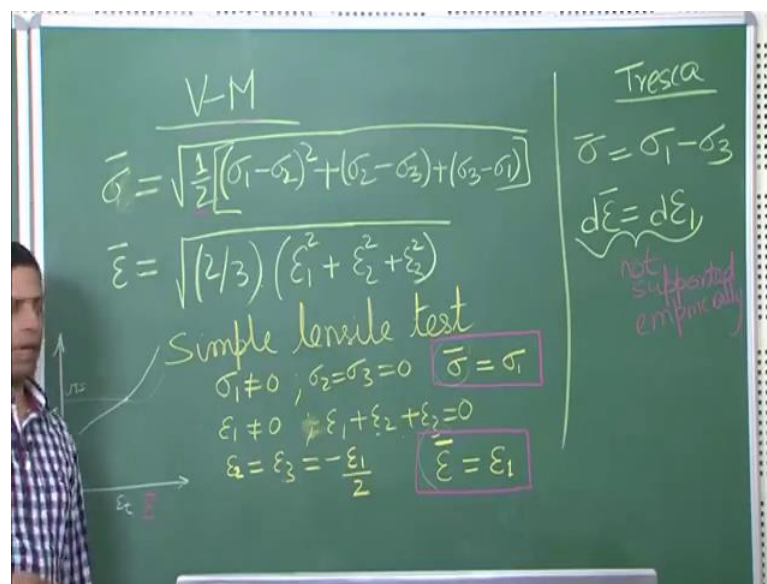 V-M
σ̄ = √(1/2 [(σ1-σ2)² + (σ2-σ3) + (σ3-σ1)])
ε̄ = √((2/3) (ε1² + ε2² + ε3²))
Simple tensile test
σ1 ≠ 0 ; σ2 = σ3 = 0 σ̄ = σ1
ε1 ≠ 0 ; ε1 + ε2 + ε3 = 0
ε2 = ε3 = -ε1/2 ε̄ = ε1
εt ε̄
Tresca
σ̄ = σ1 - σ3
dε̄ = dε1
not
supported
empirically